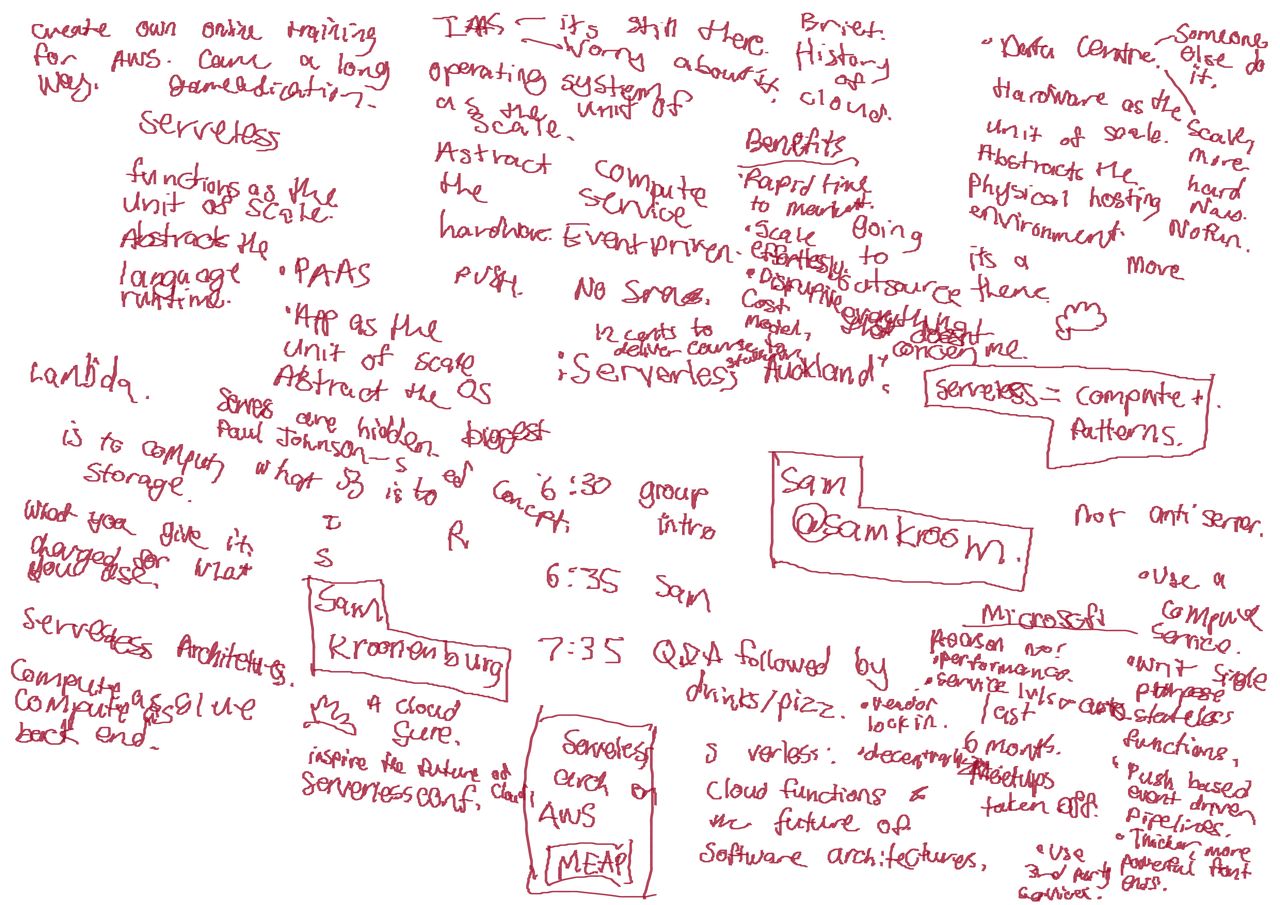 create own online training
for AWS. Came a long
way.
serverless
functions as the
unit of scale.
Abstracts the
language
runtime.
• PAAS
• App as the
unit of scale
Abstract the OS
IAAS — its still there.
worry about it.
operating system
as the unit of
scale.
Astract
the
hardware.
compute
service
Event Driven.
PUSH.
Brief
History
of
cloud.
Benefits
• Rapid time
to market.
• Scale
effortlessly.
• Disruptive
Cost
model,
12 cents to
deliver course to
going
to
outsource
everything
that doesnt
concern me.
• Data Centre.
Someone
else do
it.
Hardware as the
unit of scale.
Abstracts the
Physical hosting
environment.
Scale,
more
hard
No fun.
its a more
theme.
"Serverless Auckland"
serverless = compute +
Patterns.
Lambda.
is to compute, what S3 is to
storage.
servers are hidden
Paul Johnson
biggest
concept.
What you give it.
charged for what
you use.
6:30 group
intro
6:35 Sam
7:35 Q&A followed by
drinks/pizz.
Sam
@samkroon.
Not anti server.
Sam
Kroonenburg
A cloud
Gure.
inspire the future of
cloud.
Serverlessconf.
Serverless Architetures.
Compute as Glue
Compute as
back end.
Serverless
arch on
AWS
MEAP
S verless:
Cloud functions &
the future of
Software architectures.
Microsoft
Reason not
• performance.
• service lvls
• vendor
lock in.
• decentralised
last
6 months.
Meetups
taken off.
• Use a
compute
service.
• writ single
purpose
stateless
functions,
• Push based
event driven
Pipelines.
• Thicker, more
powerful front
ends.
• Use
3rd party
services.